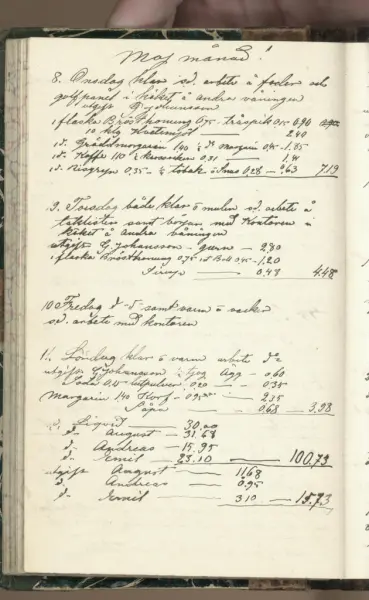 Maj månad!
8. Onsdag klar sd. arbete å foder och
golfpanel i köket å andra våningen
utgift G Johansson
1 flaska Bröst honung 0,75 - träspik 0,15 0,90
10 klg Hvetemjöl — 2,40
1 d. Gräddmargarin 1,40 ½ d. Margarin 0,45 - 1,85
1 d. Kaffe 1,10 ½ 0,31 — 1,41
1 d. Risgryn 0,35 - ½ tobak å Snus 0,28 - 0,63 7,19
9. Torsdag både klar å mulen sd. arbete å
taklister samt börjar med Kontoren i
köket å andra våningen
utgift G. Johansson - garn — 2,80
1 flaska Brösthonung 0,75 0,45 - 1,20
Sirup — 0,48 4,48
10 Fredag d-o samt varm å vacker
sd. arbete med kontoren
11. Lördag klar å varm arbete do
utgift G Johansson ½ tjog Ägg - 0,60
Soda 0,15 0,20 — 0,35
Margarin 1,40 Korf - 2,35
Såpa — 0,68 — 3,98
d. Liqvid — 30,00
d. August — 31,68
d. Andreas — 15,95
d. Emil — 23,10 — 100,73
utgift August — 11,68
d. Andreas — 0,95
d. Emil — 3,10 — 15,73